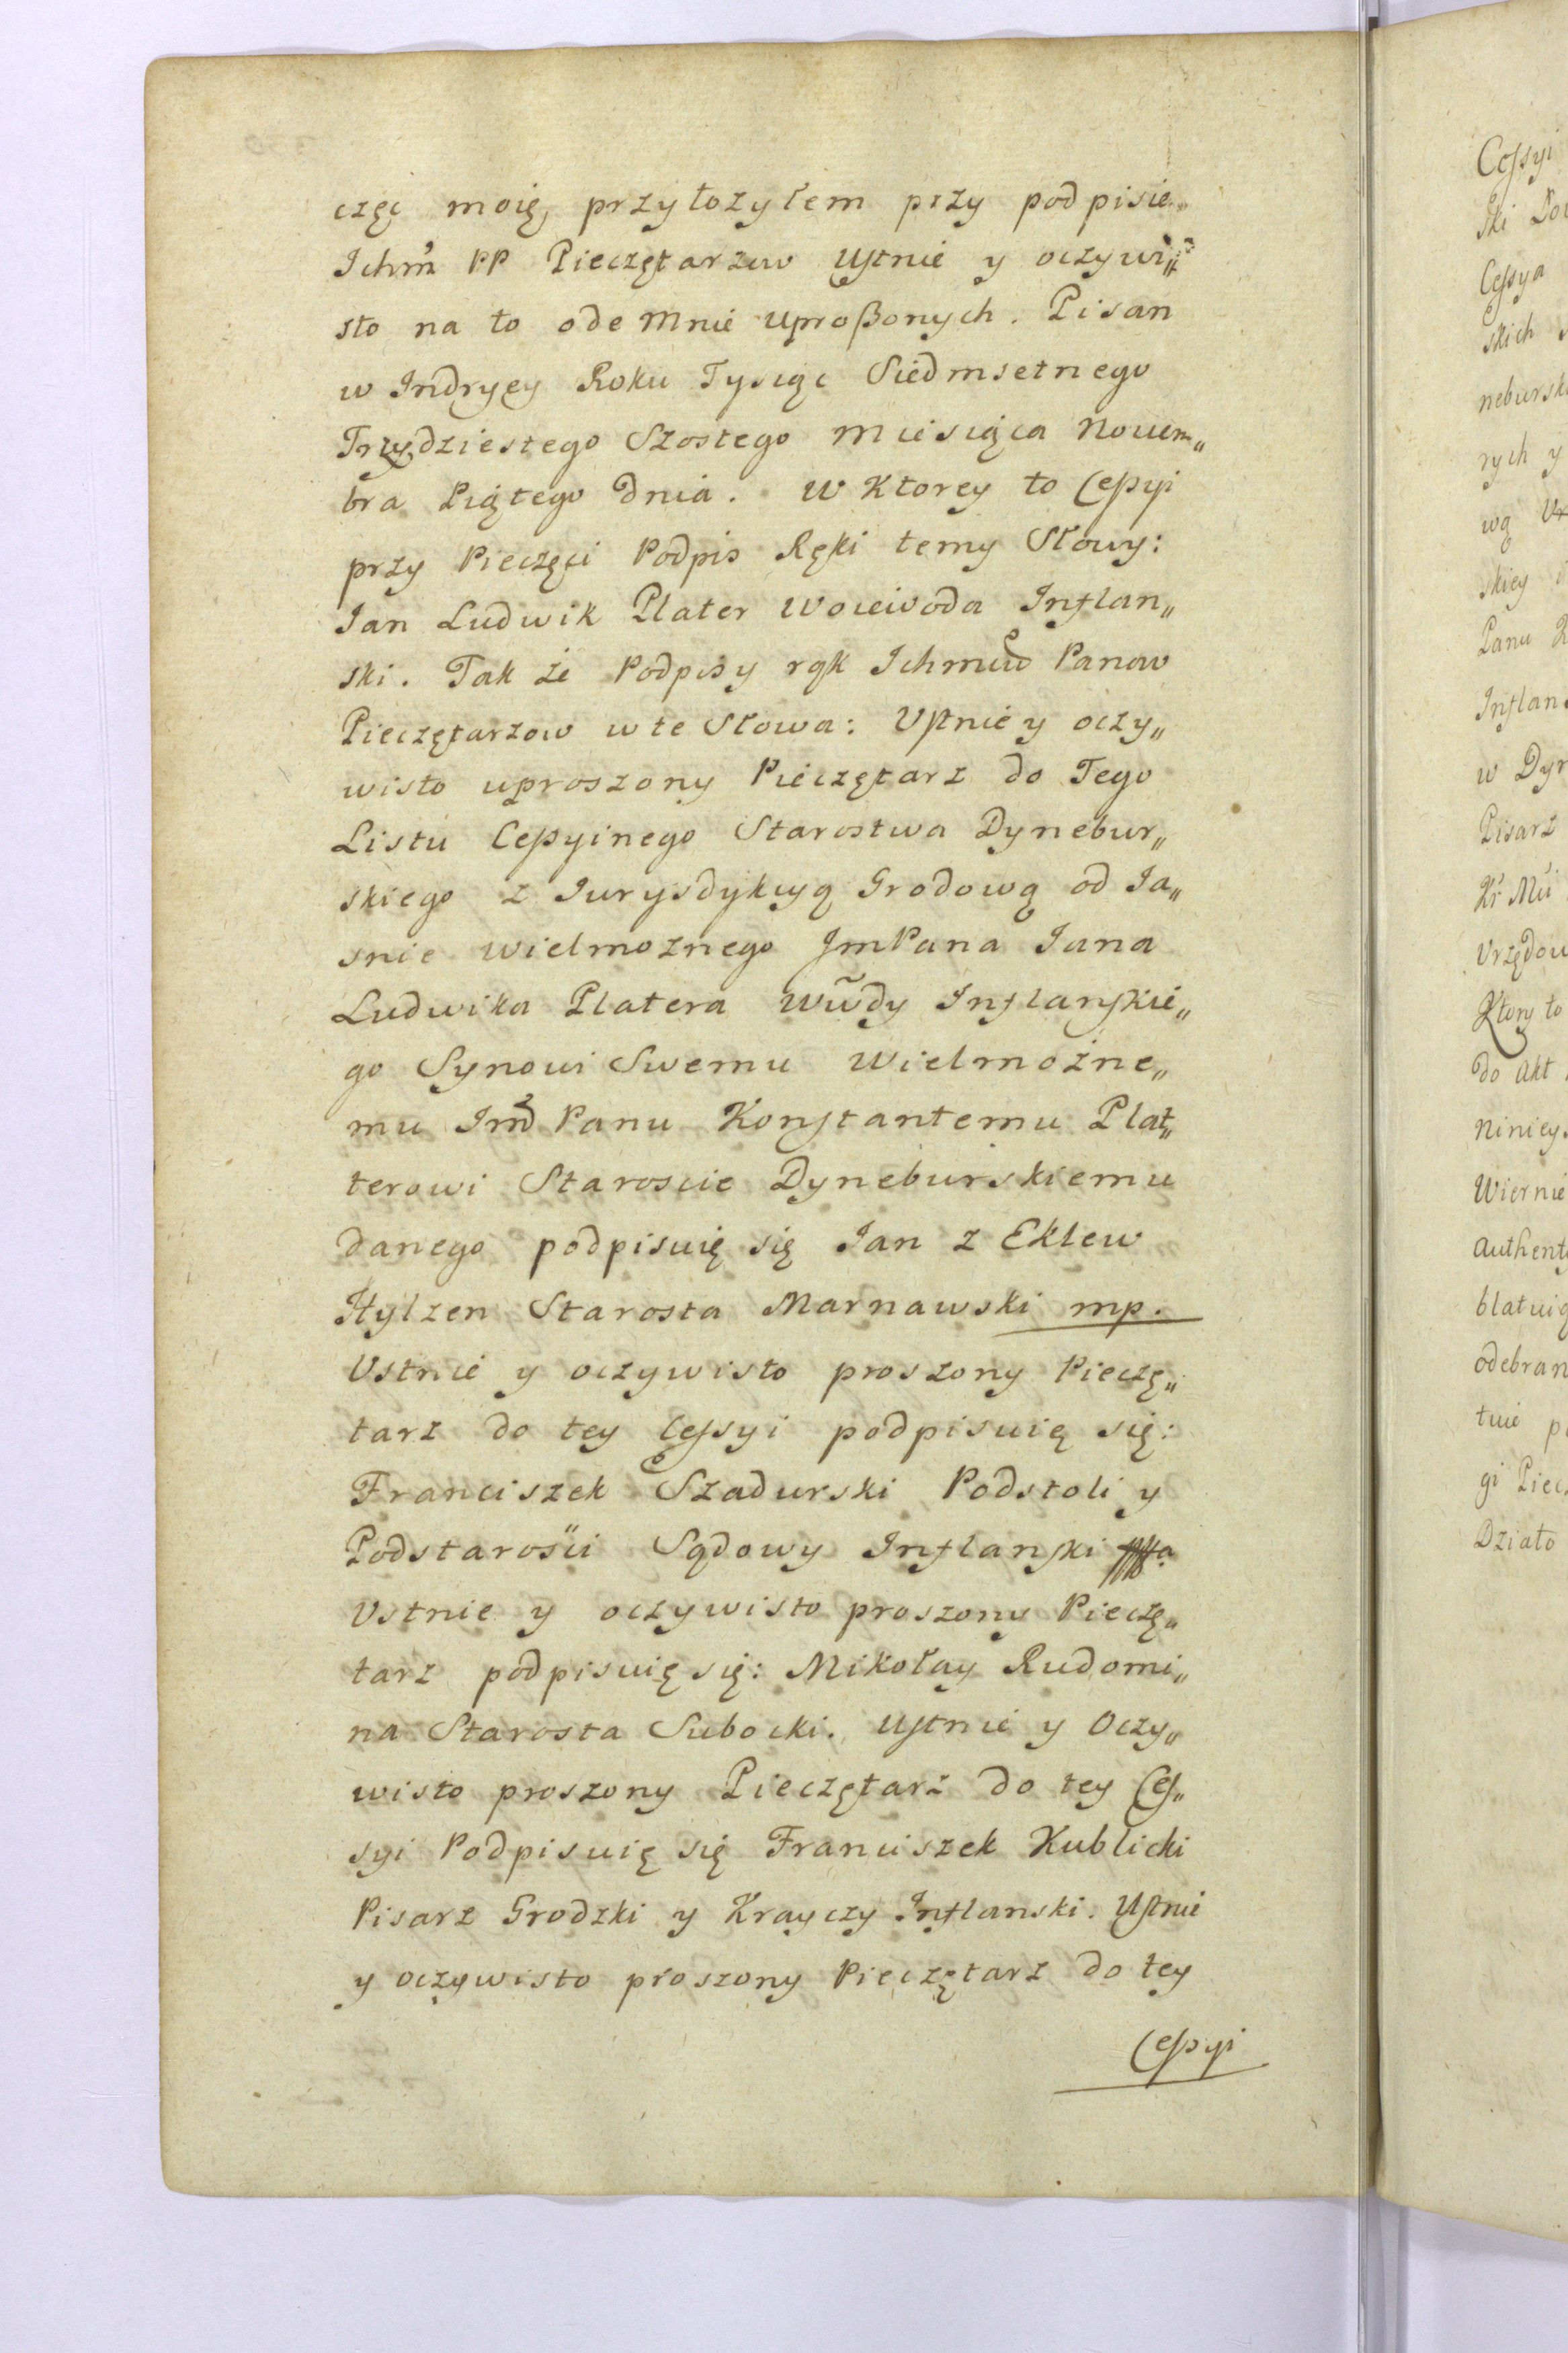 częć moię, przyłozyłem przy podpisie
Ichm PP Pieczętarzow Ustnie y oczywi„
sto na to ode mnie uproßonych. Pisan
w Indryey Roku Tysiąc Siedmsetnego
Trzydziestego Szostego Miesiąca Novem„
bra Piątego Dnia. W Ktorey to Cessyi
przy Pieczęci Podpis Ręki temy Słowy:
Jan Ludwik Plater Woiewoda Inflan„
ski. Tak że Podpisy rąk Ichmciow Panow
Pieczętarzow w te Słowa: Ustnie y oczy„
wisto uproszony Pieczętarz do Tego
Listu Cessyinego Starostwa Dynebur„
skiego z Iurysdykcyą Grodową od Ja„
snie Wielmoznego JmPana Jana
Ludwika Platera Wwdy Inflanskie„
go Synowi Swemu Wielmożne„
mu Jm Panu Konstantemu Plat„
terowi Staroscie Dyneburskiemu
danego podpisuię się Jan z Eklew
Hylzen Starosta Marnawski mp.
Ustnie y oczywisto proszony Pieczę„
tarz do tey Cessyi podpisuię się:
Franciszek Szadurski Podstoli y
Podstarości Sądowy Inflanski
Vstnie y oczywisto proszony Pieczę„
tarz podpisuię się: Mikołay Rudomi„
na Starosta Subocki. Ustnie y Oczy„
wisto proszony Pieczętarz do tey Ces„
syi Podpisuię się Franciszek Kublicki
Pisarz Grodzki y Krayczy Inflanski. Ustnie
y oczywisto proszony Pieczętarz do tey
Cessyi
Cessyi
ski
Cessya
skich
nebursk
rych y
wą
skiey
Panu
Inflan
w Dyn
Pisarz
Urzędow
Ktory to
do Akt
niniey
Wiernie
Authent
blatuią
odebran
tuie
gi Piec
Działo